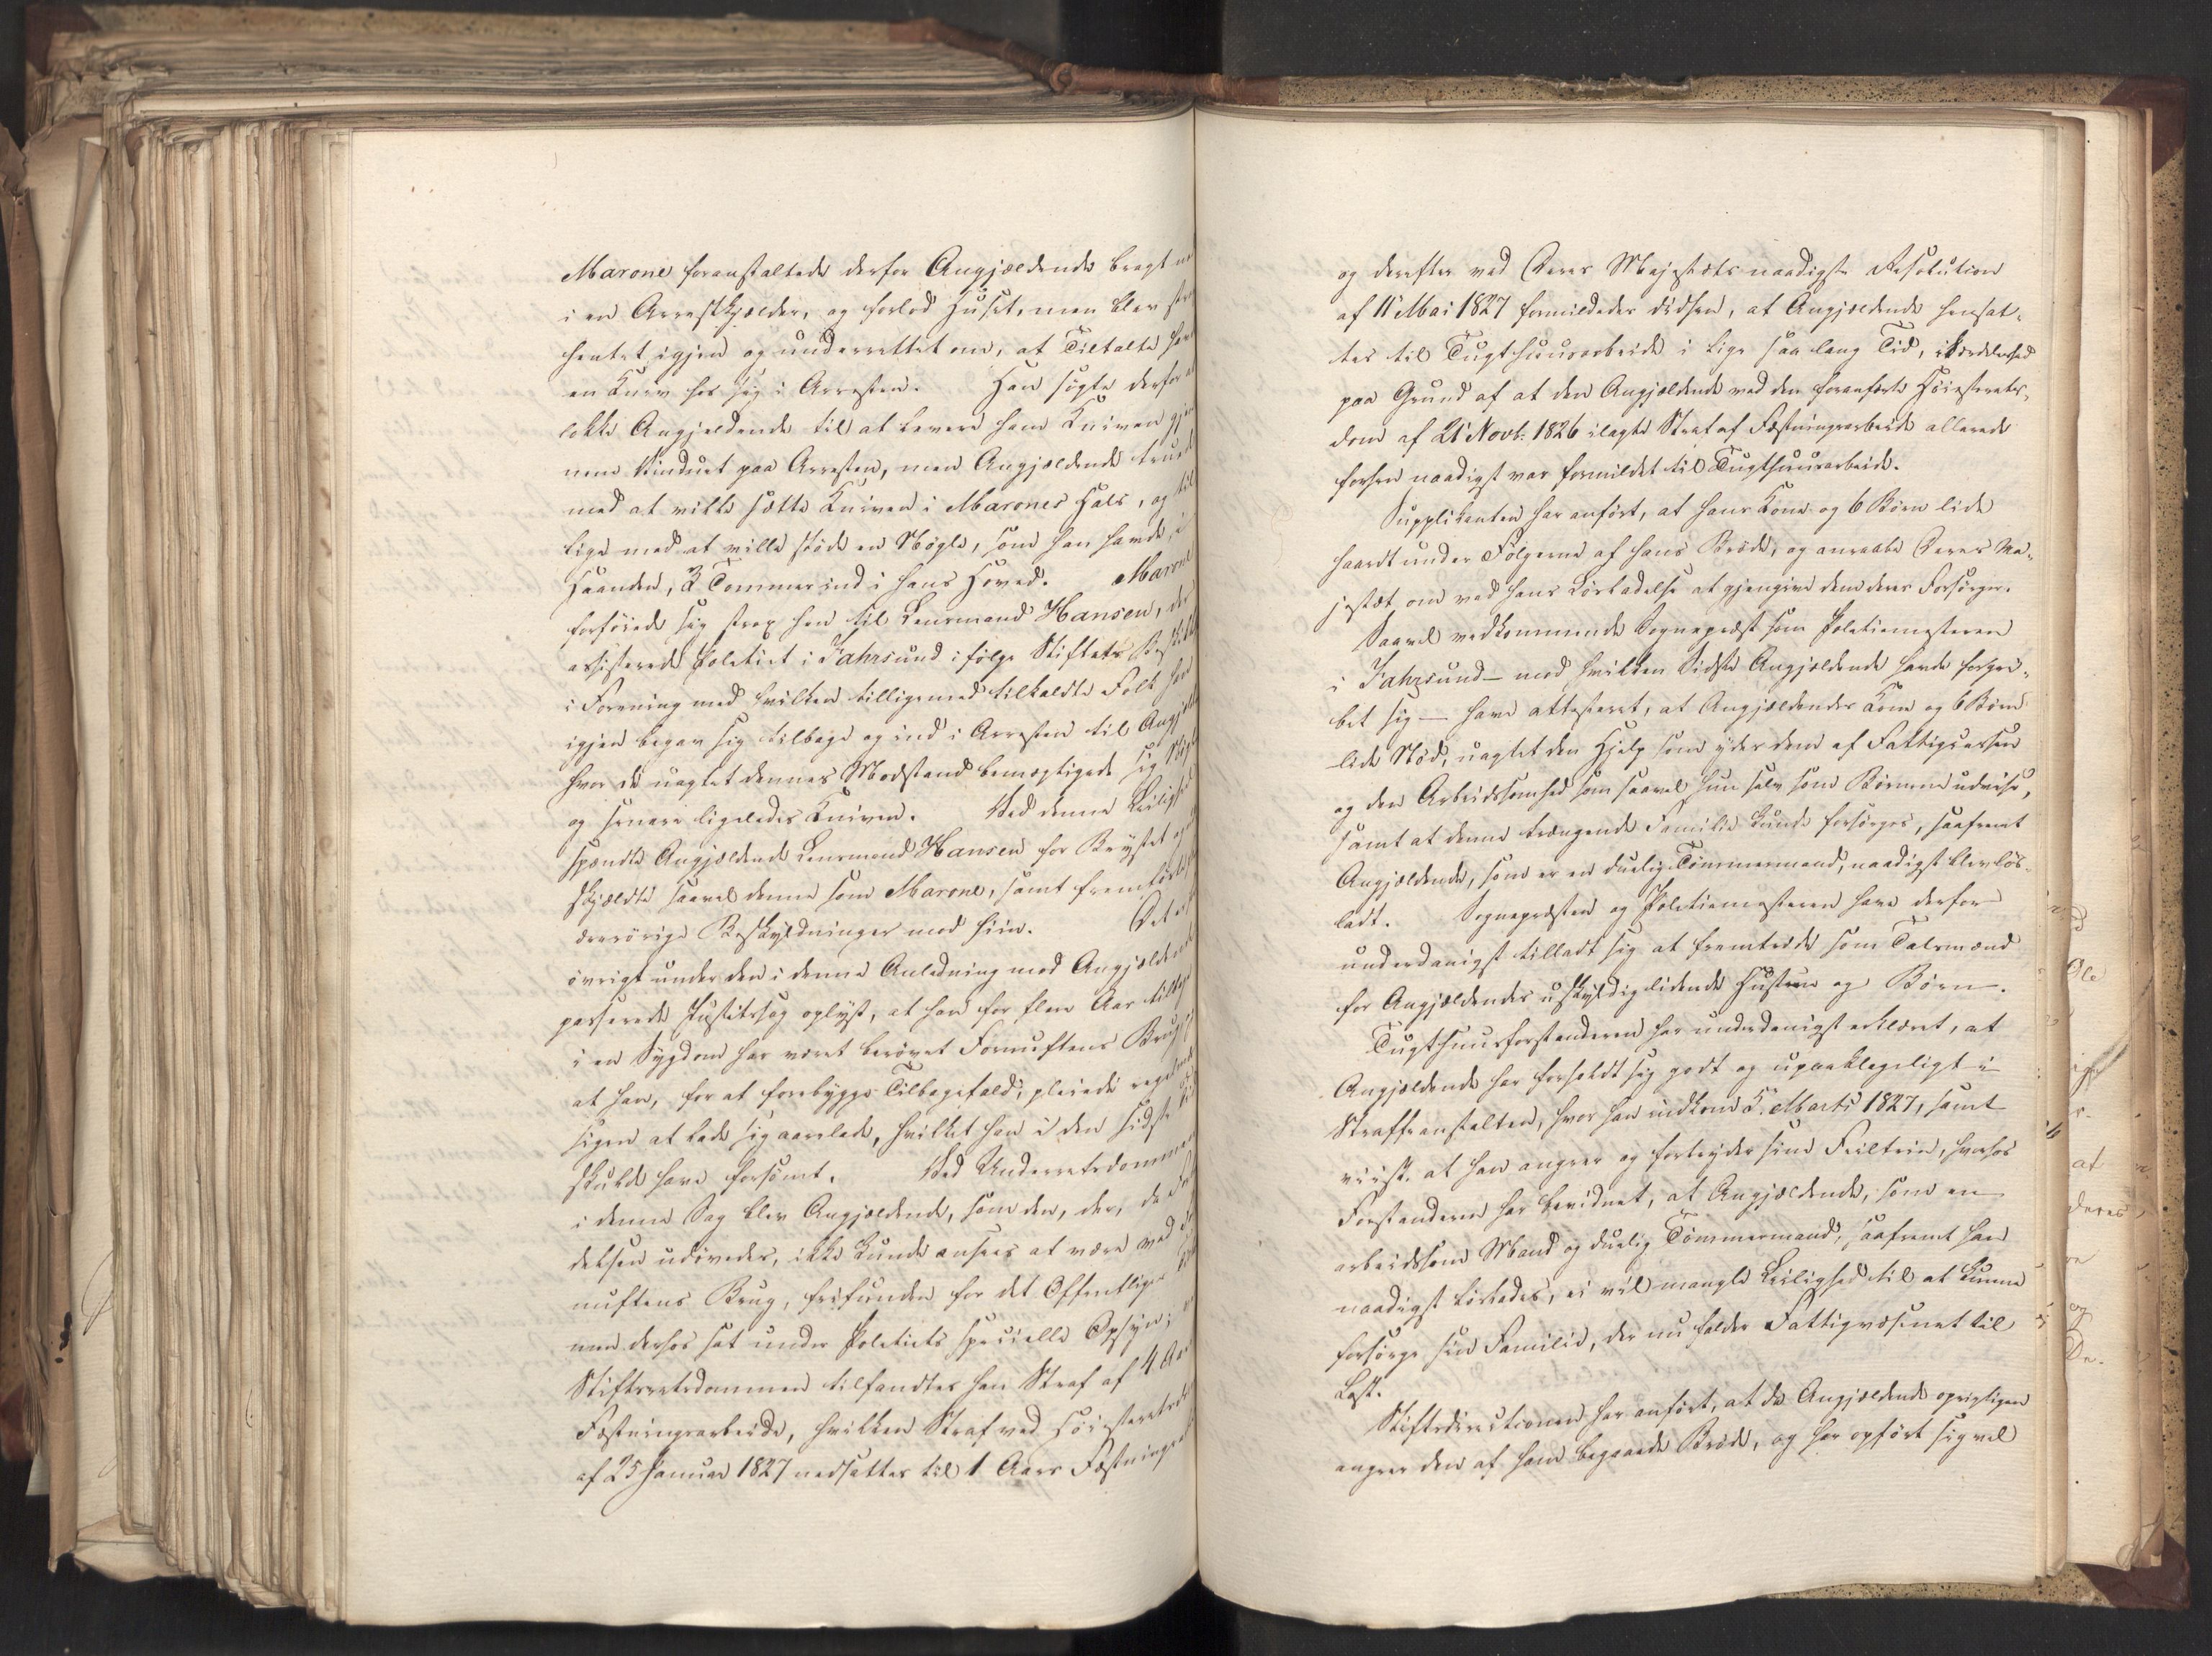 Marone foranstaltede derfor Angjældende bragt
i en Arrestkjelder, og forlod Huset, men blev
hentet igjen og underrettet om, at Tiltalte
en Kniv hos sig i Arresten. Han søgte derfor
lokke Angjeldende til at levere ham Kniven
nem Vinduet paa Arresten, men Angjældende truede
med at ville sætte Kniven i Marones Hals, og til
lige med at ville støde en Nøgle, som han havde i
Haanden, 3 Tommer ind i hans Hoved. Marone
forføiede sig strax hen til Lensmand Hansen, der
assisterede Politiet i Fahrsund ifølge Stiftets
i Forening med hvilken tilligemed tilkaldte Folk han
igjen begav sig tilbage og ind i Arresten til
hvor de uagtet dennes Modstand bemægtigede sig
og senere ligeledes Kniven. Ved denne Leilighed
spændte Angjældende Lensmand Hansen for Brystet og
skjældte saavel denne som Marone, samt fremførte
ærerørige Beskyldninger mod hiin. Det er
øvrigt under den i denne Anledning mod Angjældende
passerede Justitssag oplyst, at han for flere Aar
i en Sygdom har været berøvet Fornuftens Brug,
at han, for at forebygge Tilbagefald, pleiede
sigen at lade sig aarelade, hvilket han i den sidste Tid
skulde have forsømt. Ved Underretsdommen
i denne Sag blev Angjældende, som den, der, da
delsen udøvedes, ikke kunde ansees at være ved
nuftens Brug, frifunden for det Offentliges
men derhos sat under Politiets specielle Opsyn;
Stiftsretsdommen tilfandtes han Straf af 4 Aars
Fæstningsarbeide, hvilken Straf ved Høiesteretsdom
af 25 Januar 1827 nedsattes til 1 Aars
og derefter ved Deres Majestæts naadigste Resolution
af 11 Mai 1827 formildedes didhen, at Angjældende hensat-
tes til Tugthuusarbeide i lige saa lang Tid, isærdeleshed
paa Grund af at den Angjældende ved den foranførte Høiesterets-
dom af 21 Novbr. 1826 ilagte Straf af Fæstningsarbeide allerede
forhen naadigst var formildet til Tugthuusarbeide.
Supplikanten har anført, at hans Kone og 6 Børn lide
haardt under Følgerne af hans Brøde, og anraabe Deres Ma-
jestæt om ved hans Løsladelse at gjengive dem deres Forsørger.
Saavel vedkommende Sognepræst som Politiemesteren
i Fahrsund – mod hvilken Sidste Angjældende havde forgre-
bet sig – have attesteret, at Angjældendes Kone og 6 Børn
lide Nød, uagtet den Hjelp som ydes dem af Fattigcassen
og den Arbeidssomhed som saavel hun selv som Børnene udvise,
samt at denne trængende Familie kunde forsørges, saafremt
Angjældende, som er en duelig Tømmermand, naadigst blev løs-
ladt. Sognepræsten og Politiemesteren have derfor
underdanigst tilladt sig at fremtræde som Talsmænd
for Angjældendes uskyldig lidende Hustrue og Børn.
Tugthuusforstanderen har underdanigst erklæret, at
Angjældende har forholdt sig godt og upaaklageligt i
Straffeanstalten, hvor han indkom 5. Marts 1827, samt
viist, at han angrer og fortryder sine Feiltrin, hvorhos
Forstanderen har bevidnet, at Angjældende, som en
arbeidssom Mand og duelig Tømmermand, saafremt han
naadigst løslades, ei vil mangle Leilighed til at kunne
forsørge sin Familie, der nu falder Fattigvæsenet til
Last.
Stiftsdirectionen har anført, at da Angjældende oprigtigen
angrer den af ham begaaede Brøde, og har opført sig vel
Ole
at
deres
og
De-